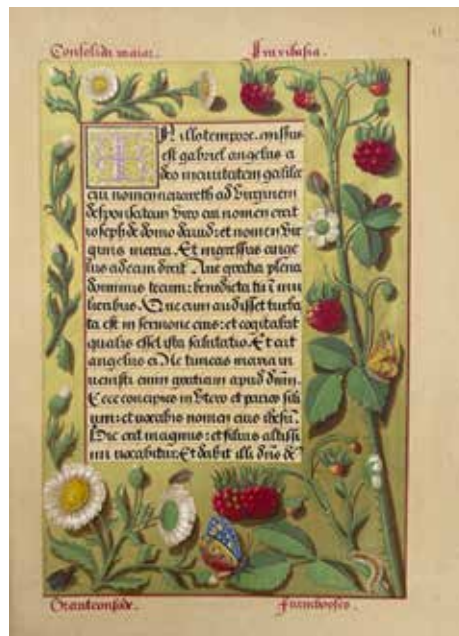 Consolide maior.
In illo tempore. missus
est gabriel angelus a
deo in ciuitatem galilee
cui nomen nazareth ad virginem
desponsatam viro cui nomen erat
ioseph de domo dauid: et nomen vir
ginis maria. Et ingressus ange
lus ad eam dixit. Aue gratia plena
dominus tecum: benedicta tu ī mu
lieribus. Que cum audisset turba
ta est in sermone eius: et cogitabat
qualis esset ista salutatio. Et ait
angelus ei. Ne timeas maria in
uenisti enim gratiam apud dn̄m.
Ecce concipies in vtero et paries fili
um: et uocabis nomen eius ihesū.
Hic erit magnus: et filius altissi
mi uocabitur. Et dabit illi dn̄s de
Framboeses.